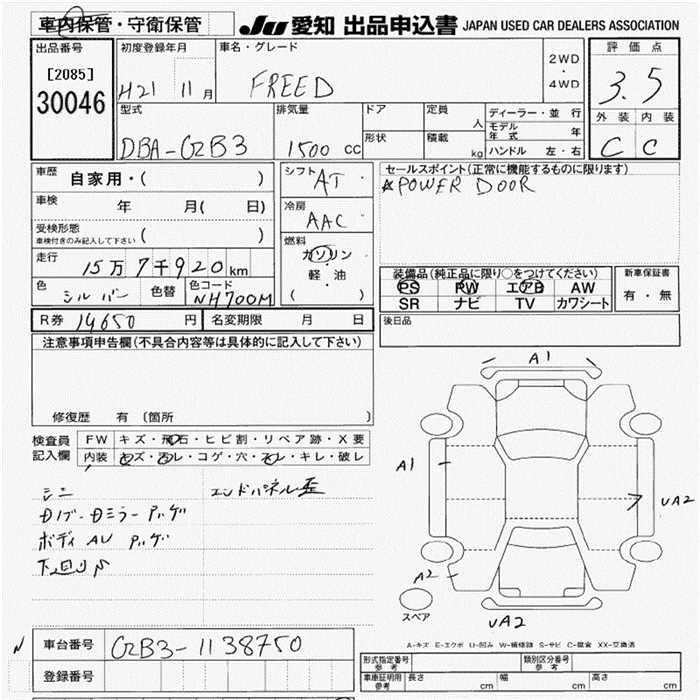 車内保管・守衛保管
JU 愛知 出品申込書 JAPAN USED CAR DEALERS ASSOCIATION
出品番号
[2085]
30046
初度登録年月
H21 11月
車名・グレード
FREED
2WD
・
4WD
評価点
3.5
外装 内装
C C
型式
DBA-GB3
排気量
1500 cc
ドア
形状
定員
人
積載
kg
ディーラー・並行
モデル年式 年
ハンドル 左・右
車歴
自家用・( )
車検
年 月( 日)
受検形態
車検付きのみ記入して下さい ( )
走行
15万7千920km
色
シルバー
色替
色コード
NH700M
シフト
AT
冷房
AAC
燃料
ガソリン
・
軽・油
( )
セールスポイント(正常に機能するものに限ります)
POWER DOOR
装備品(純正品に限り○をつけてください)
PS PW エアB AW
SR ナビ TV カワシート
新車保証書
有・無
R券 14650 円
名変期限 月 日
後日品
注意事項申告欄(不具合内容等は具体的に記入して下さい)
修復歴 有〔箇所 〕
検査員
記入欄
FW キズ・飛石・ヒビ割・リペア跡・X要
内装 キズ・汚レ・コゲ・穴・スレ・キレ・破レ
シミ
エンドパネル歪
ボディ AU
下回りS
A1
A1
UA2
A2
UA2
スペア
A-キズ E-エクボ U-凹み W-補修跡 S-サビ C-腐食 XX-交換済
車台番号
GB3-1138750
登録番号
形式指定番号
参考
類別区分番号
参考
車庫証明用
参考
長さ cm
幅 cm
高さ cm